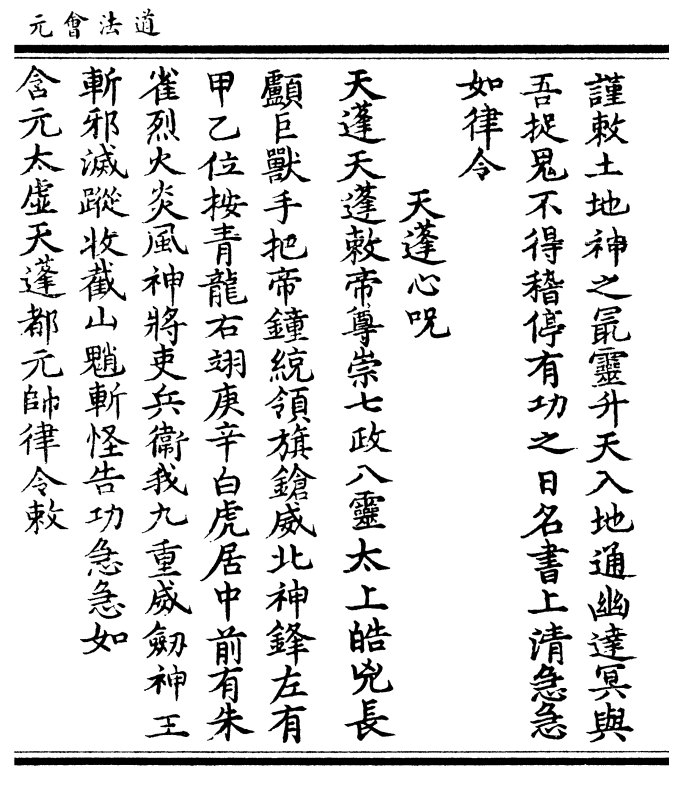 道法會元
謹敕土地神之冣靈升天入地通幽達冥與
吾捉鬼不得稽停有功之日名書上清急急
如律令
天蓬心呪
天蓬天蓬敕帝尊崇七政八靈太上皓兇長
顱巨獸手把帝鐘統領旗鎗威北神鋒左有
甲乙位按青龍右翊庚辛白虎居中前有朱
雀烈火炎風神將吏兵衞我九重威劒神王
斬邪滅蹤收截山魈斬怪告功急急如
含元太虛天蓬都元帥律令敕